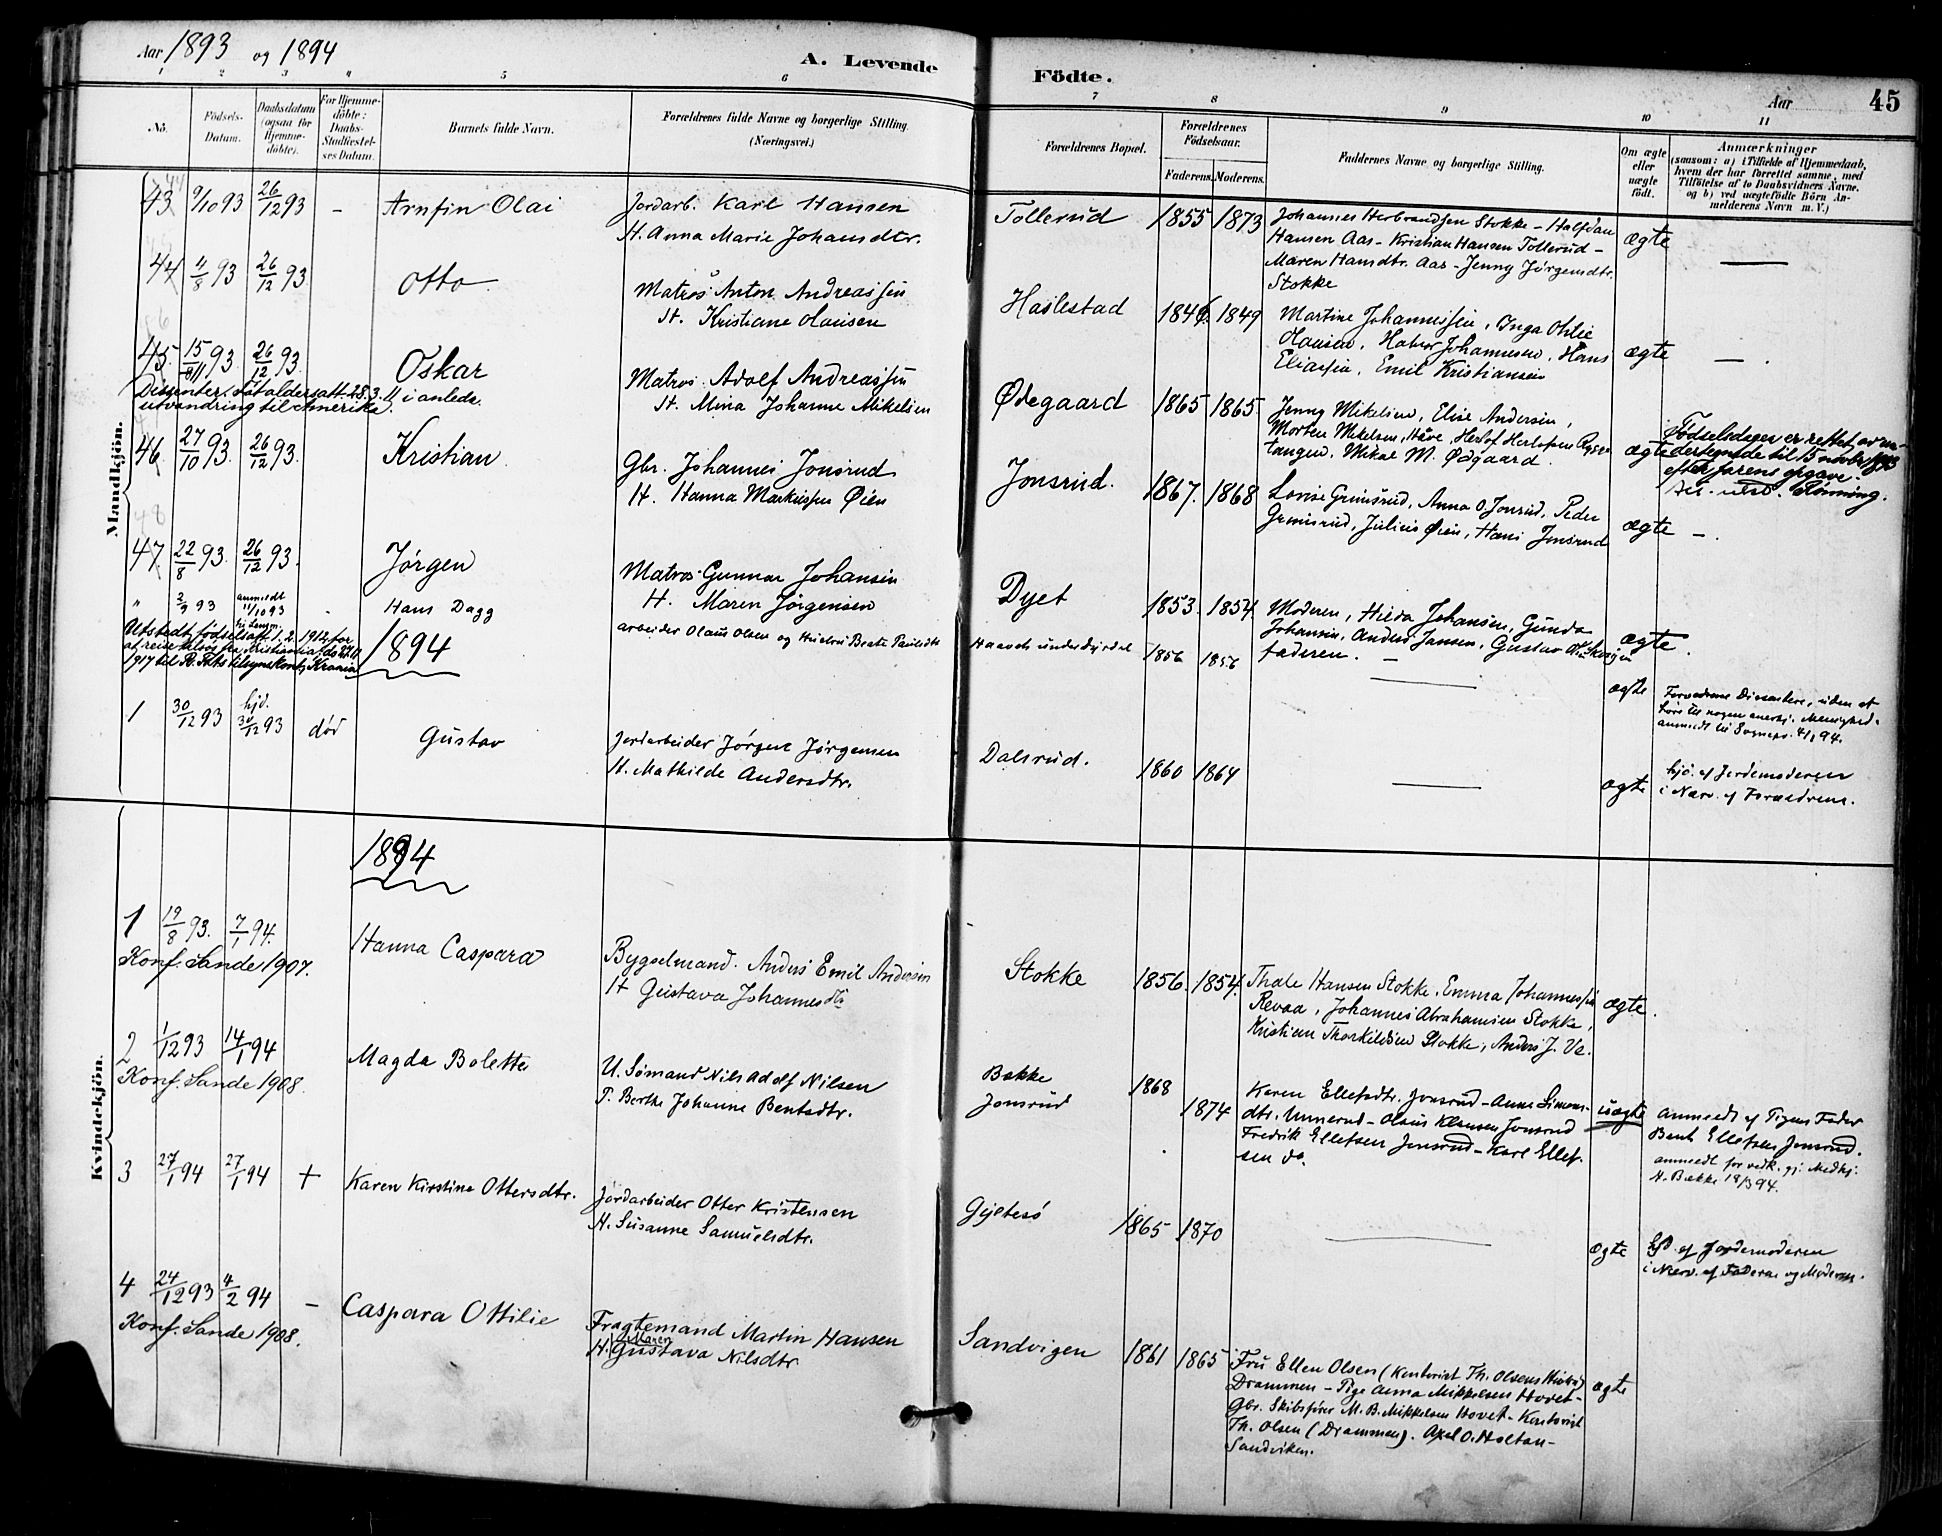 Aar 1893 og 1894
A. Levende Födte.
Aar 45
1 2 3 4 5 6 7 8 9 10 11
No.
Födsels-Datum.
Daabsdatum (ogsaa for Hjemme-döbte).
For Hjemme-döbte: Daabs-Stadfæstel-ses Datum.
Barnets fulde Navn.
Forældrenes fulde Navne og borgerlige Stilling. (Næringsvei.)
Forældrenes Bopæl.
Forældrenes Födselsaar.
Faderens. Moderens.
Faddernes Navne og borgerlige Stilling.
Om ægte eller uægte födt.
Anmærkninger
(saasom: a) i Tilfælde af Hjemmedaab, hvem der har forrettet samme, med Tilföielse af to Daabsvidners Navne. og b) ved uægtefödte Börn An-melderens Navn m. V.)
Mandkjön.
43 9/10 93 26/12 93 – Arnfin Olai
Jordarb. Karl Hansen
H. Anna Marie Johansdtr.
Tollerud 1855 1873
Johannes Herbrandsen Stokke – Halfdan
Hansen Aas – Kristian Hansen Tollerud –
Maren Hansdtr. Aas – Jenny Jørgensdtr.
Stokke
ægte —
44 4/8 93 26/12 93 Otto
Matros Anton Andreassen
H. Kristiane Olausen
Haslestad 1846 1849
Martine Johannessen, Inga Otilie
Olausen, Johannesen, Hans
Eliassen, Emil Kristiansen
ægte — .
45 15/11 93 26/12 93 Oskar
Dissenter. Fåt aldersatt. 28.3.11 i anledn.
utvandring til Amerika.
Matros Adolf Andreassen
H. Mina Johanne Mikelsen
Ødegaard 1865 1865
Jenny Mikelsen, Elise Andersen,
Morten Mikelsen, Herlof Herlofsen
tangen, Mikal M. Ødgaard.
ægte
Fødselsdagen er rettet av un-
dertegnede til 15 novbr 1893
efter farens opgave.
Rønning.
46 27/10 93 26/12 93 Kristian
Gbr. Johannes Jonsrud
H. Hanna Markussen Øien
Jonsrud. 1867. 1868
Lovise Grimsrud, Anna O. Jonsrud, Peder
Grimsrud, Julius Øien, Hans Jonsrud
ægte – .
47 22/8 93 26/12 93 Jørgen
Matros Gunnar Johansen
H. Maren Jørgensen
Dyet 1853. 1854.
Moderen, Hilda Johansen, Gunda
Johansen, Anders Jansen, Gustav
faderen. –
ægte.
" 2/9 93 anmeldt 11/10 93 – Hans Dagg
Utstedt fødselsatt. 1.2.1912 for
1917 til
arbeider Olaus Olsen og Hustru Beate Paulsdtr
1856 1856
— ægte
Forældrene Dissentere, uden at
høre til nogen anerkj. Menighed.
anmeldt til Sognepr. 4/1 94.
1894
1 30/12 93 hjd. 30/12 93 død Gustav
Jordarbeider Jørgen Jørgensen
H. Mathilde Andersdtr.
Dalsrud. 1860 1864
— ægte
hjd. af Jordemoderen
i Nærv. af Forældrene.
Kvindekjön.
1894
1 19/8 93. 7/1 94. Hanna Caspara
Konf. Sande 1907.
Bygselmand. Anders Emil Andersen
H Gustava Johannesdtr
Stokke 1856. 1854.
Thale Hansen Stokke, Emma Johannessen
Revaa, Johannes Abrahamsen Stokke,
Kristian Thorkildsen Stokke, Anders J. Ve.
ægte.
2 1/12 93 14/1 94 Magda Bolette
Konf. Sande 1908.
U. Sømand Nils Adolf Nilsen
P. Berthe Johanne Bentsdtr.
Bakke
Jonsrud
1868 1874
Karen Ellefsdtr. Jonsrud – Anne Simens-
dtr. Unnerud – Olaus Klausen Jonsrud
Fredrik Ellefsen Jonsrud – Karl Ellef-
sen do.
uægte
anmeldt af Pigens Fader
Bent Ellefsen Jonsrud.
anmeldt for vedk. gj. Medhj.
H. Bakke 18/3 94.
3 27/1 94 27/1 94 + Karen Kirstine Ottersdtr.
Jordarbeider Otter Kristensen
H. Susanne Samuelsdtr.
Gjetesø 1865 1870
— ægte
hjd. af Jordemoderen
i Nærv. af Faderen og Moderen.
4 24/12 93 4/2 94 – Caspara Ottilie
Konf. Sande 1908.
Fragtemand Martin Hansen
H. Maren Gustava Nilsdtr
Sandvigen 1861 1865
Fru Ellen Olsen (Kontorist Th. Olsens Hustru)
Drammen – Pige Anna Mikkelsen Hovet –
Gbr. Skibsfører M. B. Mikkelsen Hovet – Kontorist
Th. Olsen (Drammen). Axel O. Holtan –
Sandviken.
ægte